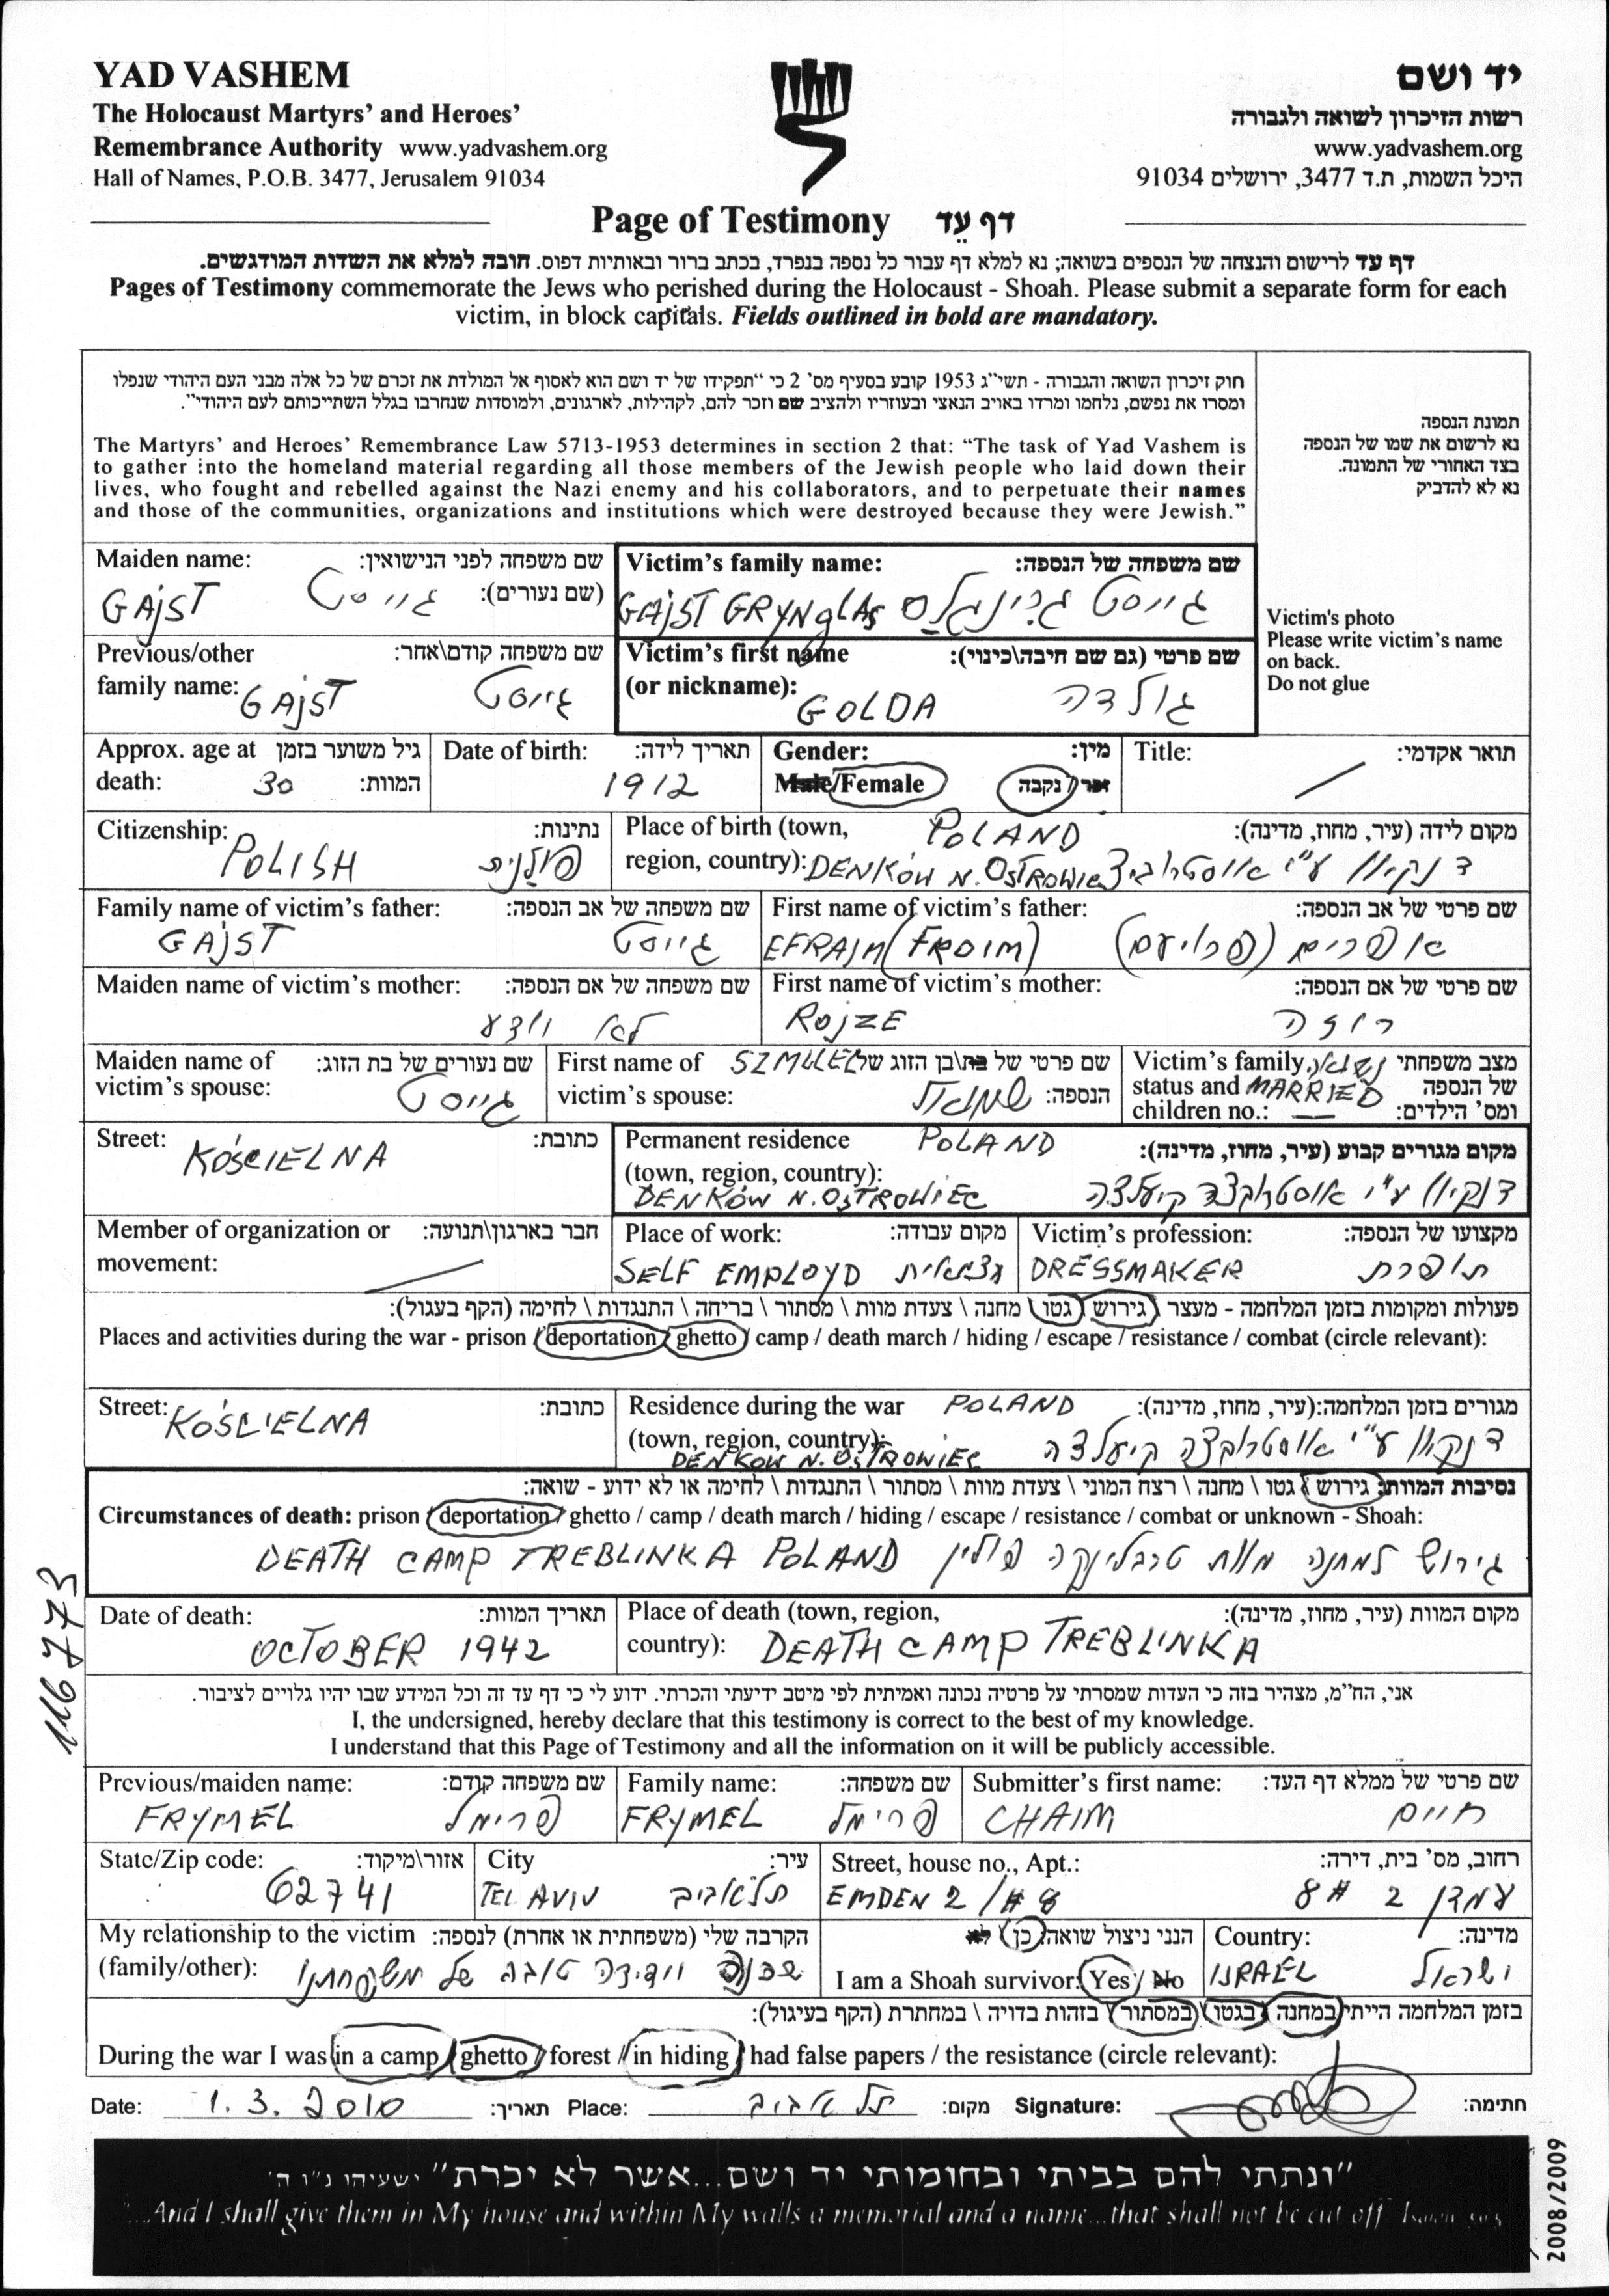 YAD VASHEM
The Holocaust Martyrs' and Heroes'
Remembrance Authority www.yadvashem.org
Hall of Names, P.O.B. 3477, Jerusalem 91034
יד ושם
רשות הזיכרון לשואה ולגבורה
www.yadvashem.org
היכל השמות, ת.ד 3477, ירושלים 91034
Page of Testimony דף עֵד
דף עד לרישום והנצחה של הנספים בשואה; נא למלא דף עבור כל נספה בנפרד, בכתב ברור ובאותיות דפוס. חובה למלא את השדות המודגשים.
Pages of Testimony commemorate the Jews who perished during the Holocaust - Shoah. Please submit a separate form for each
victim, in block capitals. Fields outlined in bold are mandatory.
חוק זיכרון השואה והגבורה - תשי"ג 1953 קובע בסעיף מס' 2 כי "תפקידו של יד ושם הוא לאסוף אל המולדת את זכרם של כל אלה מבני העם היהודי שנפלו
ומסרו את נפשם, נלחמו ומרדו באויב הנאצי ובעוזריו ולהציב שם וזכר להם, לקהילות, לארגונים, ולמוסדות שנחרבו בגלל השתייכותם לעם היהודי".
The Martyrs' and Heroes' Remembrance Law 5713-1953 determines in section 2 that: "The task of Yad Vashem is
to gather into the homeland material regarding all those members of the Jewish people who laid down their
lives, who fought and rebelled against the Nazi enemy and his collaborators, and to perpetuate their names
and those of the communities, organizations and institutions which were destroyed because they were Jewish."
תמונת הנספה
נא לרשום את שמו של הנספה
בצד האחורי של התמונה.
נא לא להדביק
Victim's photo
Please write victim's name
on back.
Do not glue
Maiden name: שם משפחה לפני הנישואין:
(שם נעורים):
GAJST גייסט
Victim's family name: שם משפחה של הנספה:
GAJST GRYNGLAS גייסט גרינגלס
Previous/other שם משפחה קודם\אחר:
family name: GAJST גייסט
Victim's first name שם פרטי (גם שם חיבה\כינוי):
(or nickname): GOLDA גולדה
Approx. age at גיל משוער בזמן
death: 30 המוות:
Date of birth: תאריך לידה:
1912
Gender: מין:
Male/Female זכר/נקבה
Title: תואר אקדמי:
Citizenship: נתינות:
POLISH פולנית
Place of birth (town, POLAND מקום לידה (עיר, מחוז, מדינה):
region, country): DENKÓW N. OSTROWIEC דנקוו ע"י אוסטרוביצ
Family name of victim's father: שם משפחה של אב הנספה:
GAJST גייסט
First name of victim's father: שם פרטי של אב הנספה:
EFRAIM (FROIM) אפרים (פרויעם)
Maiden name of victim's mother: שם משפחה של אם הנספה:
לא ידוע
First name of victim's mother: שם פרטי של אם הנספה:
ROJZE רוזה
Maiden name of שם נעורים של בת הזוג:
victim's spouse: גייסט
First name of SZMUEL שם פרטי של בת\בן הזוג של
victim's spouse: שמואל הנספה:
Victim's family נשואה מצב משפחתי
status and MARRIED של הנספה
children no.: — ומס' הילדים:
Street: KOŚCIELNA כתובת:
Permanent residence POLAND מקום מגורים קבוע (עיר, מחוז, מדינה):
(town, region, country):
DENKÓW N. OSTROWIEC דנקוו ע"י אוסטרובצה קיעלצה
Member of organization or חבר בארגון\תנועה:
movement:
Place of work: מקום עבודה:
SELF EMPLOYD עצמאית
Victim's profession: מקצועו של הנספה:
DRESSMAKER תופרת
פעולות ומקומות בזמן המלחמה - מעצר \ גירוש \ גטו \ מחנה \ צעדת מוות \ מסתור \ בריחה \ התנגדות \ לחימה (הקף בעגול):
Places and activities during the war - prison / deportation / ghetto / camp / death march / hiding / escape / resistance / combat (circle relevant):
Street: KOŚCIELNA כתובת:
Residence during the war POLAND מגורים בזמן המלחמה:(עיר, מחוז, מדינה):
(town, region, country):
DENKOW N. OSTROWIEC דנקוו ע"י אוסטרובצה קיעלצה
נסיבות המוות: גירוש \ גטו \ מחנה \ רצח המוני \ צעדת מוות \ מסתור \ התנגדות \ לחימה או לא ידוע - שואה:
Circumstances of death: prison / deportation / ghetto / camp / death march / hiding / escape / resistance / combat or unknown - Shoah:
DEATH CAMP TREBLINKA POLAND גירוש למחנה מוות טרבלינקה פולין
Date of death: תאריך המוות:
OCTOBER 1942
Place of death (town, region, מקום המוות (עיר, מחוז, מדינה):
country): DEATH CAMP TREBLINKA
אני, הח"מ, מצהיר בזה כי העדות שמסרתי על פרטיה נכונה ואמיתית לפי מיטב ידיעתי והכרתי. ידוע לי כי דף עד זה וכל המידע שבו יהיו גלויים לציבור.
I, the undersigned, hereby declare that this testimony is correct to the best of my knowledge.
I understand that this Page of Testimony and all the information on it will be publicly accessible.
Previous/maiden name: שם משפחה קודם:
FRYMEL פרימל
Family name: שם משפחה:
FRYMEL פרימל
Submitter's first name: שם פרטי של ממלא דף העד:
CHAIM חיים
State/Zip code: אזור\מיקוד:
62741
City עיר:
TEL AVIV תל אביב
Street, house no., Apt.: רחוב, מס' בית, דירה:
EMDEN 2 / # 8 עמדן 2 # 8
My relationship to the victim הקרבה שלי (משפחתית או אחרת) לנספה:
(family/other): שכנה וידידה טובה של משפחתנו
הנני ניצול שואה: כן \ לא
I am a Shoah survivor: Yes / No
Country: מדינה:
ISRAEL ישראל
בזמן המלחמה הייתי במחנה \ בגטו \ במסתור \ בזהות בדויה \ במחתרת (הקף בעיגול):
During the war I was in a camp / ghetto / forest / in hiding / had false papers / the resistance (circle relevant):
Date: 1.3.2010 תאריך: Place: תל אביב מקום: Signature: חתימה:
"ונתתי להם בביתי ובחומותי יד ושם...אשר לא יכרת" ישעיהו נ"ו ה'
"...And I shall give them in My house and within My walls a memorial and a name...that shall not be cut off" Isaiah 56:5
116773
2008/2009